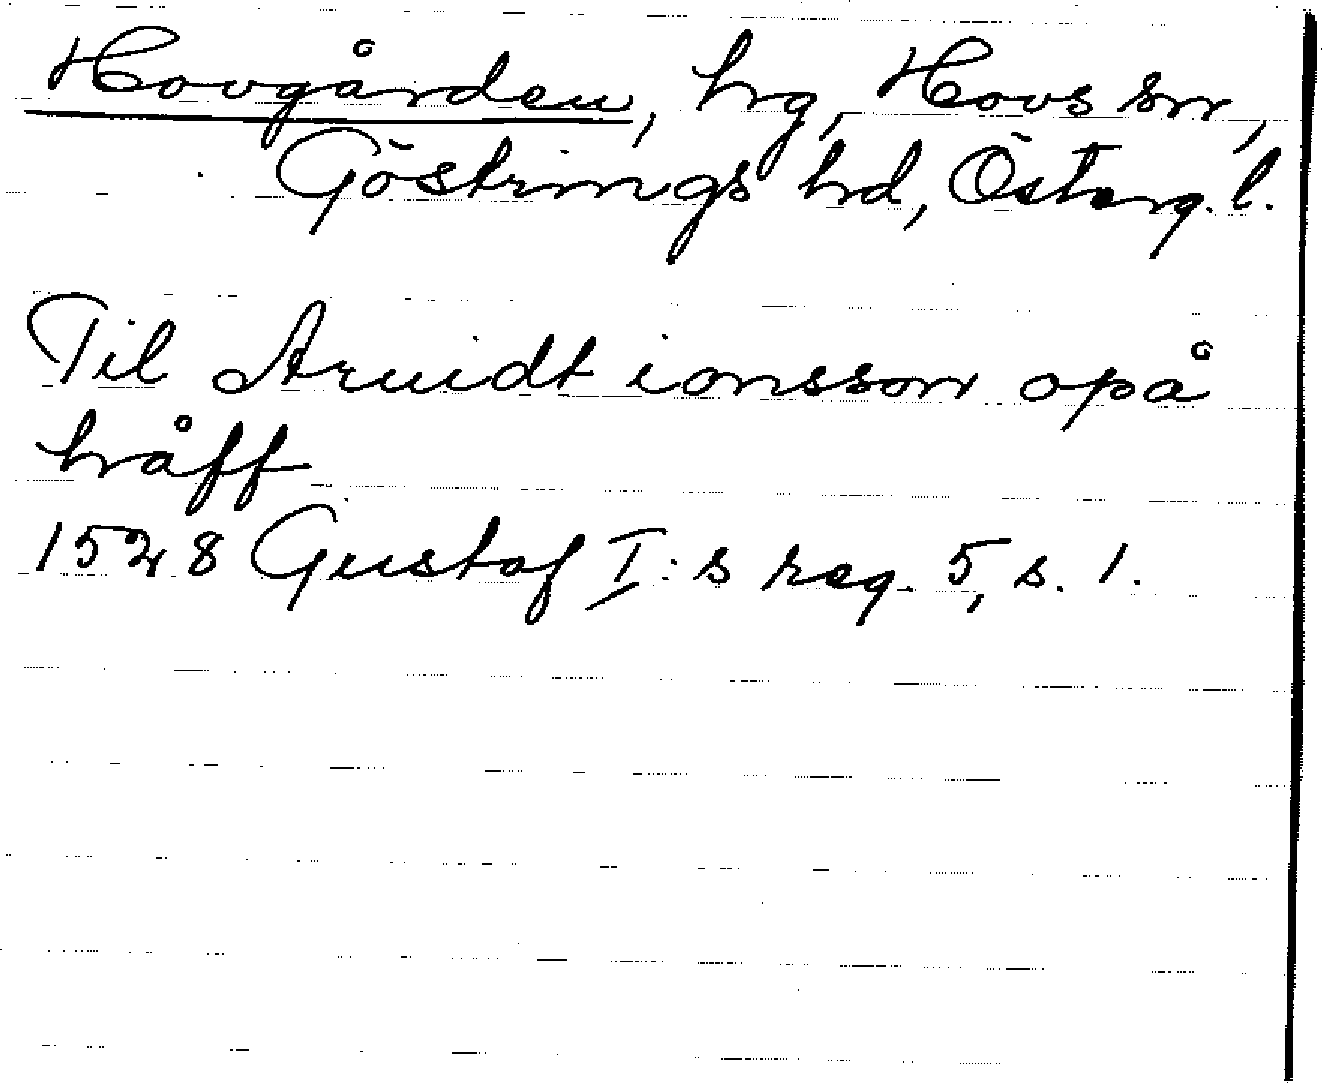 Hovgården, hg, Hovs sn,
Göstrings hd, Österg. l.
Til Aruidt ionsson opå
håff
1528 Gustaf I:s reg. 5, s. 1.